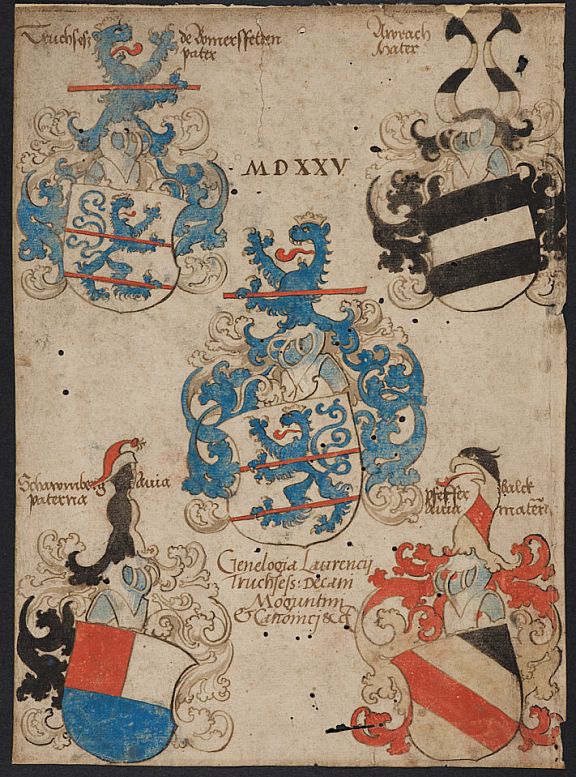 Truchses
de Bomersfelten
pater
Awrach
Mater
MDXXV
Schawmberg avia
paterna
pfeffer balck
avia matern
Genelogia Laurencij
Truchsess: Decani
Moguntini
& Canonici &c